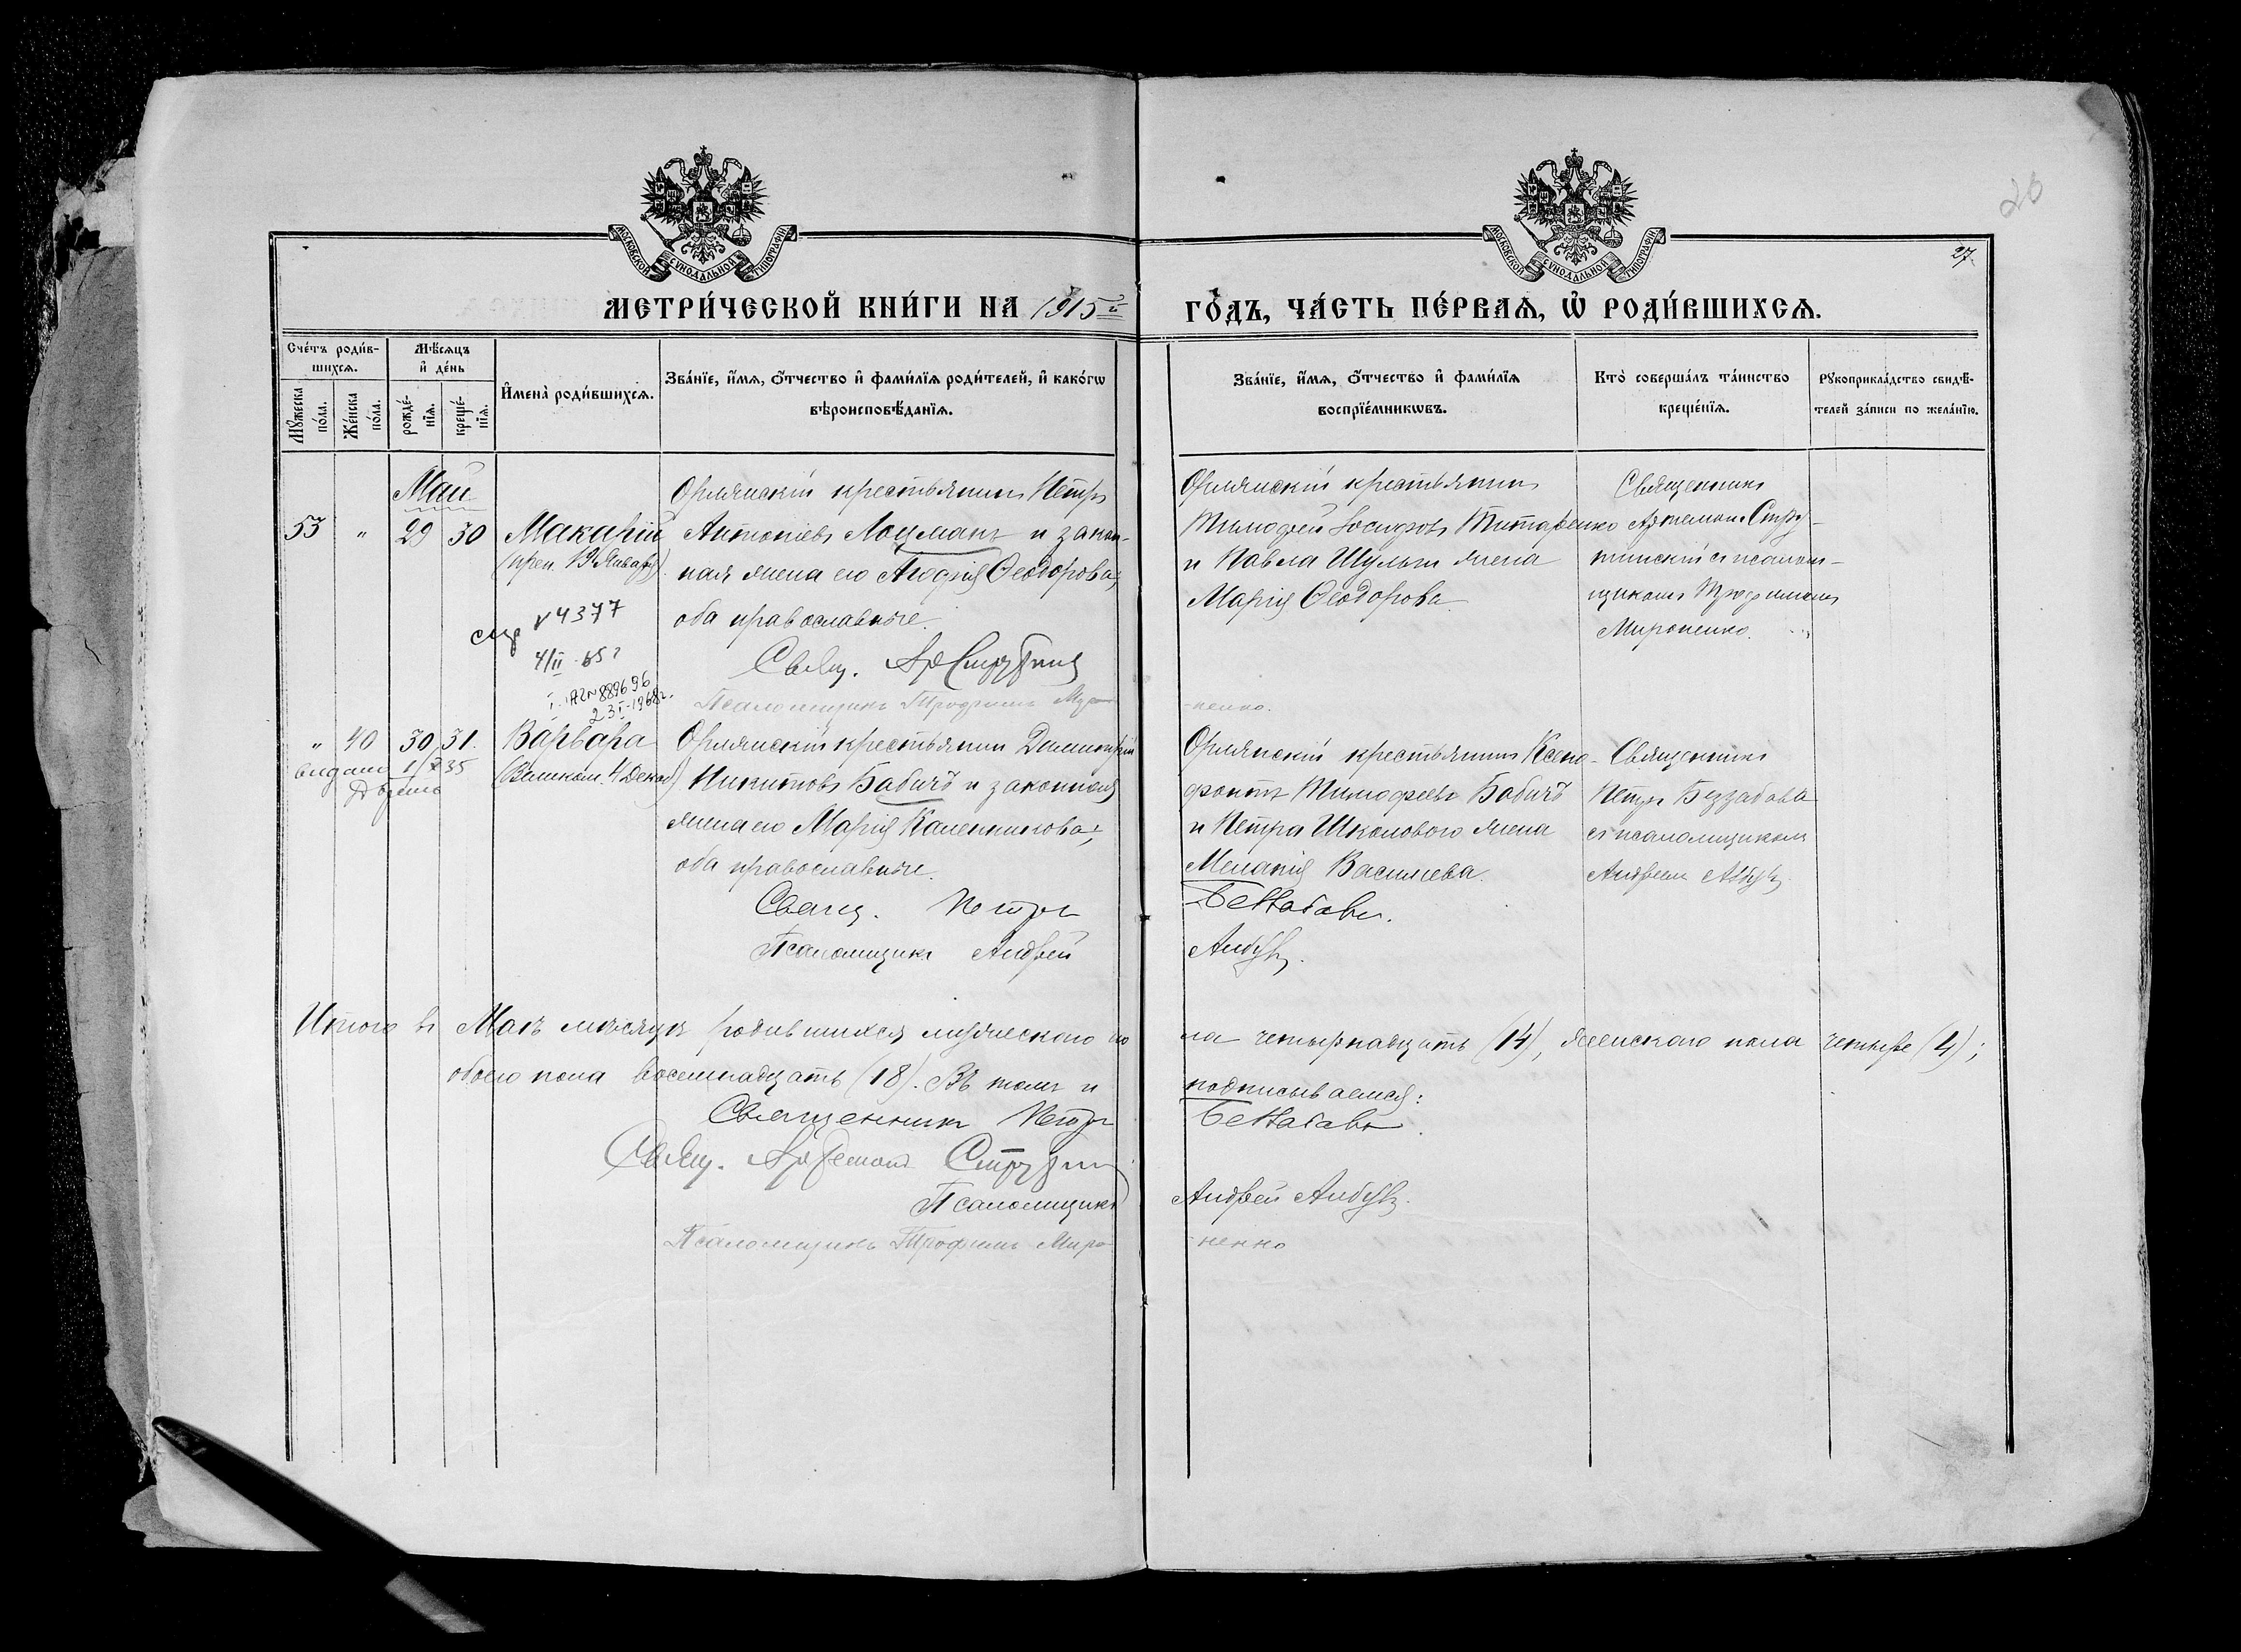 20
27.
МОСКОВСКОЙ СѴНОДАЛЬНОЙ ТИПОГРАФІИ
МОСКОВСКОЙ СѴНОДАЛЬНОЙ ТИПОГРАФІИ
МЕТРИ́ЧЕСКОЙ КНИ́ГИ НА 1915й ГО́ДЪ, ЧА́СТЬ ПЕ́РВАѦ, Ѡ҆ РОДИ́ВШИХСѦ.
Сче́тъ роди́вшихсѧ.
Мꙋ́жеска по́ла.
Же́нска по́ла.
Мѣ́сѧцъ и҆ де́нь
рожде́нїѧ.
креще́нїѧ.
И҆мена̀ роди́вшихсѧ.
Зва́нїе, и҆́мѧ, ѻ҆́тчество и҆ фами́лїѧ роди́телей, и҆ како́гѡ
вѣроисповѣ́данїѧ.
Зва́нїе, и҆́мѧ, ѻ҆́тчество и҆ фами́лїѧ
воспрїе́мникѡвъ.
Кто̀ соверша́лъ та́инство
креще́нїѧ.
Рꙋкоприкла́дство свидѣ́-
телей за́писи по жела́нїю.
Май
53 " 29 30 Макарій
(преп. 19 Января)
Орлянскій крестьянинъ Петръ
Антоніевъ Лоцманъ и закон-
ная жена его Агафія Ѳеодорова;
оба православные.
Свящ. Ар Струтинс
Псаломщикъ Трофимъ Миро-
-ненко.
Орлянскій крестьянинъ
Тимоѳей Іосифовъ Титаренко
и Павла Шульги жена
Марія Ѳеодорова
Священникъ
Артемонъ Стру-
тинскій съ псалом-
щикомъ Трофимомъ
Мироненко.
№ 4377
4/II
23/I-1968г.
" 40 30 31. Варвара
(Великом. 4 Декаб)
выдано 1/X 35
Орлянскій крестьянинъ Димитрій
Никитовъ Бабичъ и законная
жена его Марія Каленникова;
оба православные.
Свящ. Петръ
Беззабавы.
Псаломщикъ Андрей
Орлянскій крестьянинъ Ксено-
фонтъ Тимоѳеевъ Бабичъ
и Петра Школового жена
Меланія Васильева.
Священникъ
Петръ Беззабава
съ псаломщикомъ
Андреемъ
Итого въ Маѣ мѣсяцѣ родившихся мужескаго по
ла четырнадцать (14), женскаго пола четыре (4);
обоего пола восемнадцать (18). Въ томъ и
подписываемся:
Священникъ Петръ
Беззабава
Свящ. Артемонъ Струтинс
Псаломщикъ
Андрей
Псаломщикъ Трофимъ Миро-
-ненко